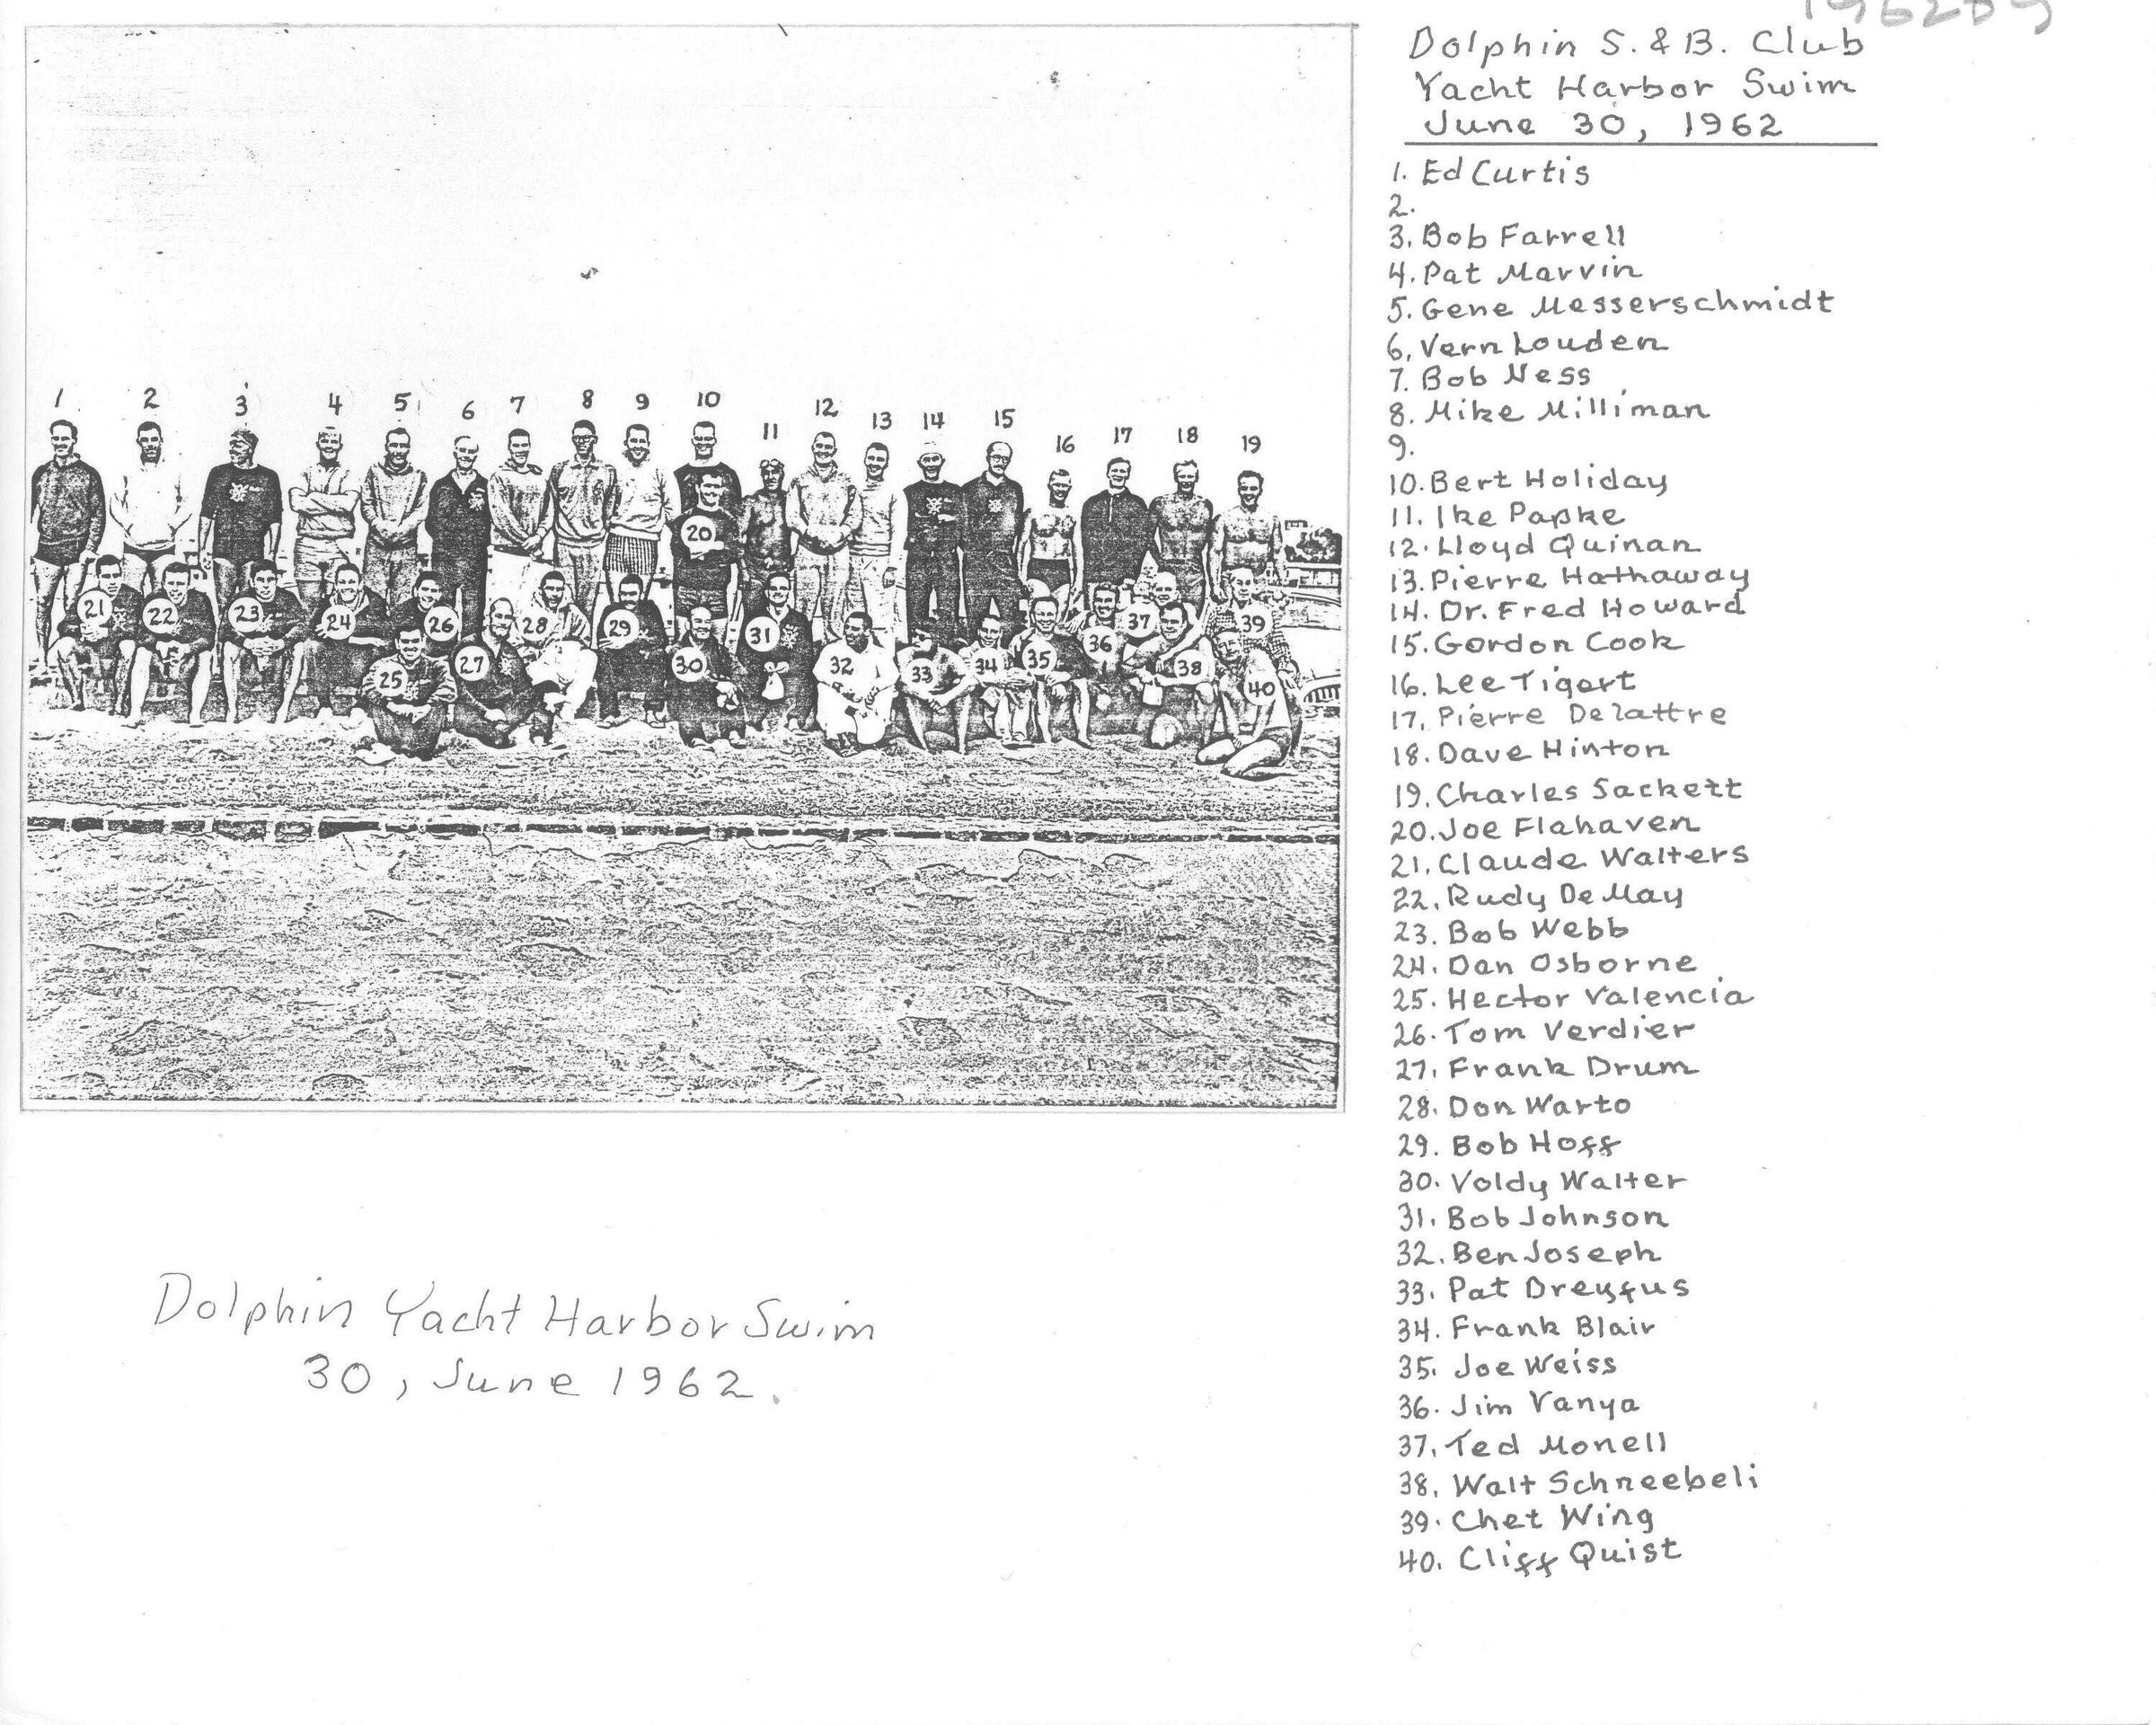 Dolphin S. & B. Club
Yacht Harbor Swim
June 30, 1962
1. Ed Curtis
2.
3. Bob Farrell
4. Pat Marvin
5. Gene Messerschmidt
6. Vern Louden
7. Bob Ness
8. Mike Milliman
9.
10. Bert Holiday
11. Ike Papke
12. Lloyd Quinan
13. Pierre Hathaway
14. Dr. Fred Howard
15. Gordon Cook
16. Lee Tigert
17. Pierre Delattre
18. Dave Hinton
19. Charles Sackett
20. Joe Flahaven
21. Claude Walters
22. Rudy De May
23. Bob Webb
24. Dan Osborne
25. Hector Valencia
26. Tom Verdier
27. Frank Drum
28. Don Warto
29. Bob Hoff
30. Voldy Walter
31. Bob Johnson
32. Ben Joseph
33. Pat Dreyfus
34. Frank Blair
35. Joe Weiss
36. Jim Vanya
37. Ted Monell
38. Walt Schneebeli
39. Chet Wing
40. Cliff Quist
1 2 3 4 5 6 7 8 9 10 11 12 13 14 15 16 17 18 19
20
21 22 23 24 26 28 29 31 36 37 39
25 27 30 32 33 34 35 38 40
Dolphin Yacht Harbor Swim
30, June 1962.